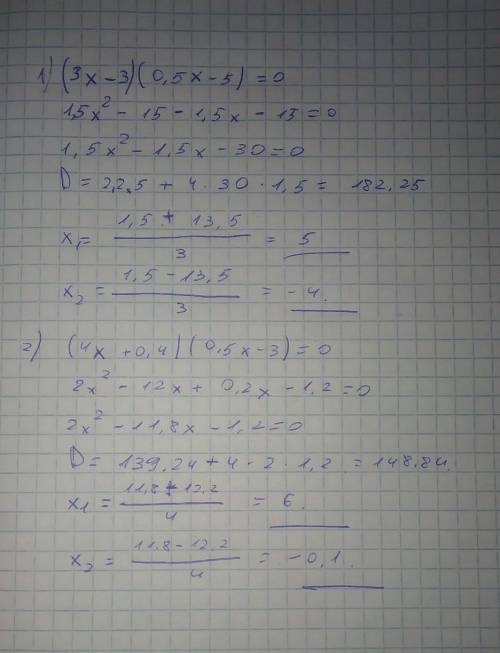 1) (3x-3)(0,5x-5)=0
1,5x² - 15 - 1,5x - 15=0
1,5x² - 1,5x - 30=0
D = 2,2.5 + 4·30·1,5 = 182,25
x₁= (1,5 + 13,5)/3 = 5
x₂ = (1,5 - 13,5)/3 = -4.
2) (4x+0,4)(0,5x-3)=0
2x² - 12x + 0,2x - 1,2=0
2x² - 11,8x - 1,2=0
D = 139,24+4·2·1,2 = 148,84
x1 = (11,8+12,2)/4 = 6.
x₂ = (11,8-12,2)/4 = -0,1.